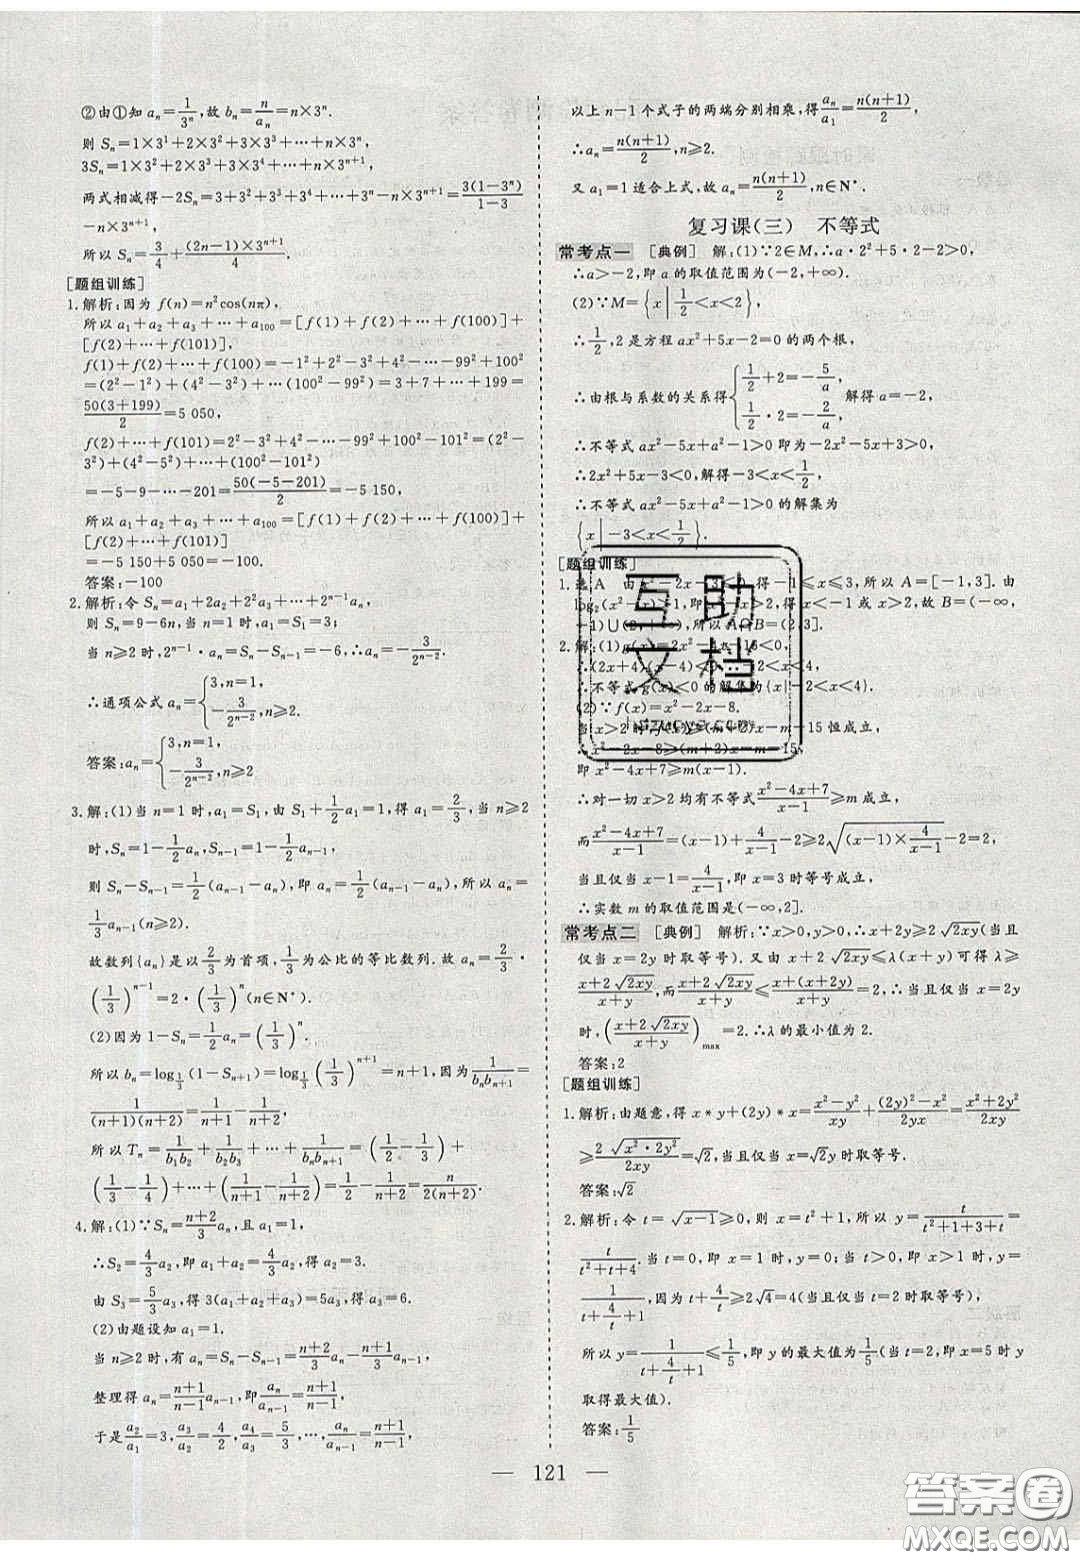 ②由①知 aₙ=1/3ⁿ,故 bₙ=n/aₙ=n×3ⁿ.
则 Sₙ=1×3¹+2×3²+3×3³+…+n×3ⁿ,
3Sₙ=1×3²+2×3³+3×3⁴+…+n×3ⁿ⁺¹,
两式相减得-2Sₙ=3+3²+3³+…+3ⁿ-n×3ⁿ⁺¹=3(1-3ⁿ)/(1-3)
-n×3ⁿ⁺¹,
所以 Sₙ=3/4+(2n-1)×3ⁿ⁺¹/4.
[题组训练]
1.解析:因为 f(n)=n²cos(nπ),
所以 a₁+a₂+a₃+…+a₁₀₀=[f(1)+f(2)+…+f(100)]+
[f(2)+…+f(101)],
f(1)+f(2)+…+f(100)=-1²+2²-3²+4²-…-99²+100²
=(2²-1²)+(4²-3²)+…(100²-99²)=3+7+…+199=
50(3+199)/2=5 050,
f(2)+…+f(101)=2²-3²+4²-…-99²+100²-101²=(2²-
3²)+(4²-5²)+…+(100²-101²)
=-5-9-…-201=50(-5-201)/2=-5 150,
所以 a₁+a₂+a₃+…+a₁₀₀=[f(1)+f(2)+…+f(100)]+
[f(2)+…+f(101)]
=-5 150+5 050=-100.
答案:-100
2.解析:令 Sₙ=a₁+2a₂+2²a₃+…+2ⁿ⁻¹aₙ,
则 Sₙ=9-6n,当 n=1 时,a₁=S₁=3;
当 n≥2 时,2ⁿ⁻¹·aₙ=Sₙ-Sₙ₋₁=-6,∴aₙ=-3/2ⁿ⁻².
∴通项公式 aₙ={3,n=1, -3/2ⁿ⁻²,n≥2.
答案:aₙ={3,n=1, -3/2ⁿ⁻²,n≥2
3.解:(1)当 n=1 时,a₁=S₁,由 S₁+1/2a₁=1,得 a₁=2/3,当 n≥2
时,Sₙ=1-1/2aₙ,Sₙ₋₁=1-1/2aₙ₋₁,
则 Sₙ-Sₙ₋₁=1/2(aₙ₋₁-aₙ),即 aₙ=1/2(aₙ₋₁-aₙ),所以 aₙ=
1/3aₙ₋₁(n≥2).
故数列{aₙ}是以2/3为首项,1/3为公比的等比数列.故 aₙ=2/3·
(1/3)ⁿ⁻¹=2·(1/3)ⁿ(n∈N*).
(2)因为 1-Sₙ=1/2aₙ=(1/3)ⁿ.
所以 bₙ=log_{1/3}(1-Sₙ₊₁)=log_{1/3}(1/3)ⁿ⁺¹=n+1,因为1/(bₙbₙ₊₁)=
1/((n+1)(n+2))=1/(n+1)-1/(n+2),
所以 Tₙ=1/(b₁b₂)+1/(b₂b₃)+…+1/(bₙbₙ₊₁)=(1/2-1/3)+
(1/3-1/4)+…+(1/(n+1)-1/(n+2))=1/2-1/(n+2)=n/(2(n+2)).
4.解:(1)∵Sₙ=(n+2)/3 aₙ,且 a₁=1,
∴S₂=4/3a₂,即 a₁+a₂=4/3a₂,得 a₂=3.
由 S₃=5/3a₃,得 3(a₁+a₂+a₃)=5a₃,得 a₃=6.
(2)由题设知 a₁=1.
当 n≥2 时,有 aₙ=Sₙ-Sₙ₋₁=(n+2)/3 aₙ-(n+1)/3 aₙ₋₁,
整理得 aₙ=(n+1)/(n-1) aₙ₋₁,即aₙ/aₙ₋₁=(n+1)/(n-1),
于是 a₂/a₁=3,a₃/a₂=4/2,a₄/a₃=5/3,…,aₙ/aₙ₋₁=(n+1)/(n-1),
以上 n-1 个式子的两端分别相乘,得aₙ/a₁=n(n+1)/2,
∴aₙ=n(n+1)/2,n≥2.
又 a₁=1 适合上式,故 aₙ=n(n+1)/2,n∈N*.
复习课(三) 不等式
常考点一 [典例] 解:(1)∵2∈M,∴a·2²+5·2-2>0,
∴a>-2,即 a 的取值范围为(-2,+∞).
(2)∵M={x|1/2<x<2},
∴1/2,2 是方程 ax²+5x-2=0 的两个根,
∴由根与系数的关系得{1/2+2=-5/a, 1/2·2=-2/a 解得 a=-2,
∴不等式 ax²-5x+a²-1>0 即为-2x²-5x+3>0,
∴2x²+5x-3<0,解得-3<x<1/2,
∴不等式 ax²-5x+a²-1>0 的解集为
{x|-3<x<1/2}.
[题组训练]
1.选 A 由 x²-2x-3≤0,得-1≤x≤3,所以 A=[-1,3].由
log₂(x²-x)>1,即 x²-x>2,得 x<-1 或 x>2,故 B=(-∞,
-1)∪(2,+∞),所以 A∩B=(2,3].
2.解:(1)g(x)=2x²-4x-16<0,
∴(2x+4)(x-4)<0,∴-2<x<4,
∴不等式 g(x)<0 的解集为{x|-2<x<4}.
(2)∵f(x)=x²-2x-8.
当 x>2 时,f(x)≥(m+2)x-m-15 恒成立,
∴x²-2x-8≥(m+2)x-m-15,
即 x²-4x+7≥m(x-1).
∴对一切 x>2 均有不等式(x²-4x+7)/(x-1)≥m 成立,
而(x²-4x+7)/(x-1)=(x-1)+4/(x-1)-2≥2√((x-1)×4/(x-1))-2=2,
当且仅当 x-1=4/(x-1),即 x=3 时等号成立,
∴实数 m 的取值范围是(-∞,2].
常考点二 [典例] 解析:∵x>0,y>0,∴x+2y≥2√(2xy)(当且
仅当 x=2y 时取等号).又由 x+2√(2xy)≤λ(x+y)可得 λ≥
(x+2√(2xy))/(x+y),而(x+2√(2xy))/(x+y)≤(x+(x+2y))/(x+y)=2,∴当且仅当 x=2y
时,((x+2√(2xy))/(x+y))max=2.∴λ 的最小值为 2.
答案:2
[题组训练]
1.解析:由题意,得 x*y+(2y)*x=(x²-y²)/xy+((2y)²-x²)/2yx=(x²+2y²)/2xy
≥2√(x²·2y²)/2xy=√2,当且仅当 x=√2y 时取等号.
答案:√2
2.解析:令 t=√(x-1)≥0,则 x=t²+1,所以 y=t/(t²+1+3+t)=
t/(t²+t+4).当 t=0,即 x=1 时,y=0;当 t>0,即 x>1 时,y=
1/(t+4/t+1),因为 t+4/t≥2√4=4(当且仅当 t=2 时取等号),
所以 y=1/(t+4/t+1)≤1/5,即 y 的最大值为1/5(当 t=2,即 x=5 时 y
取得最大值).
答案:1/5
— 121 —
互助
文档
答案卷
MXQE.COM